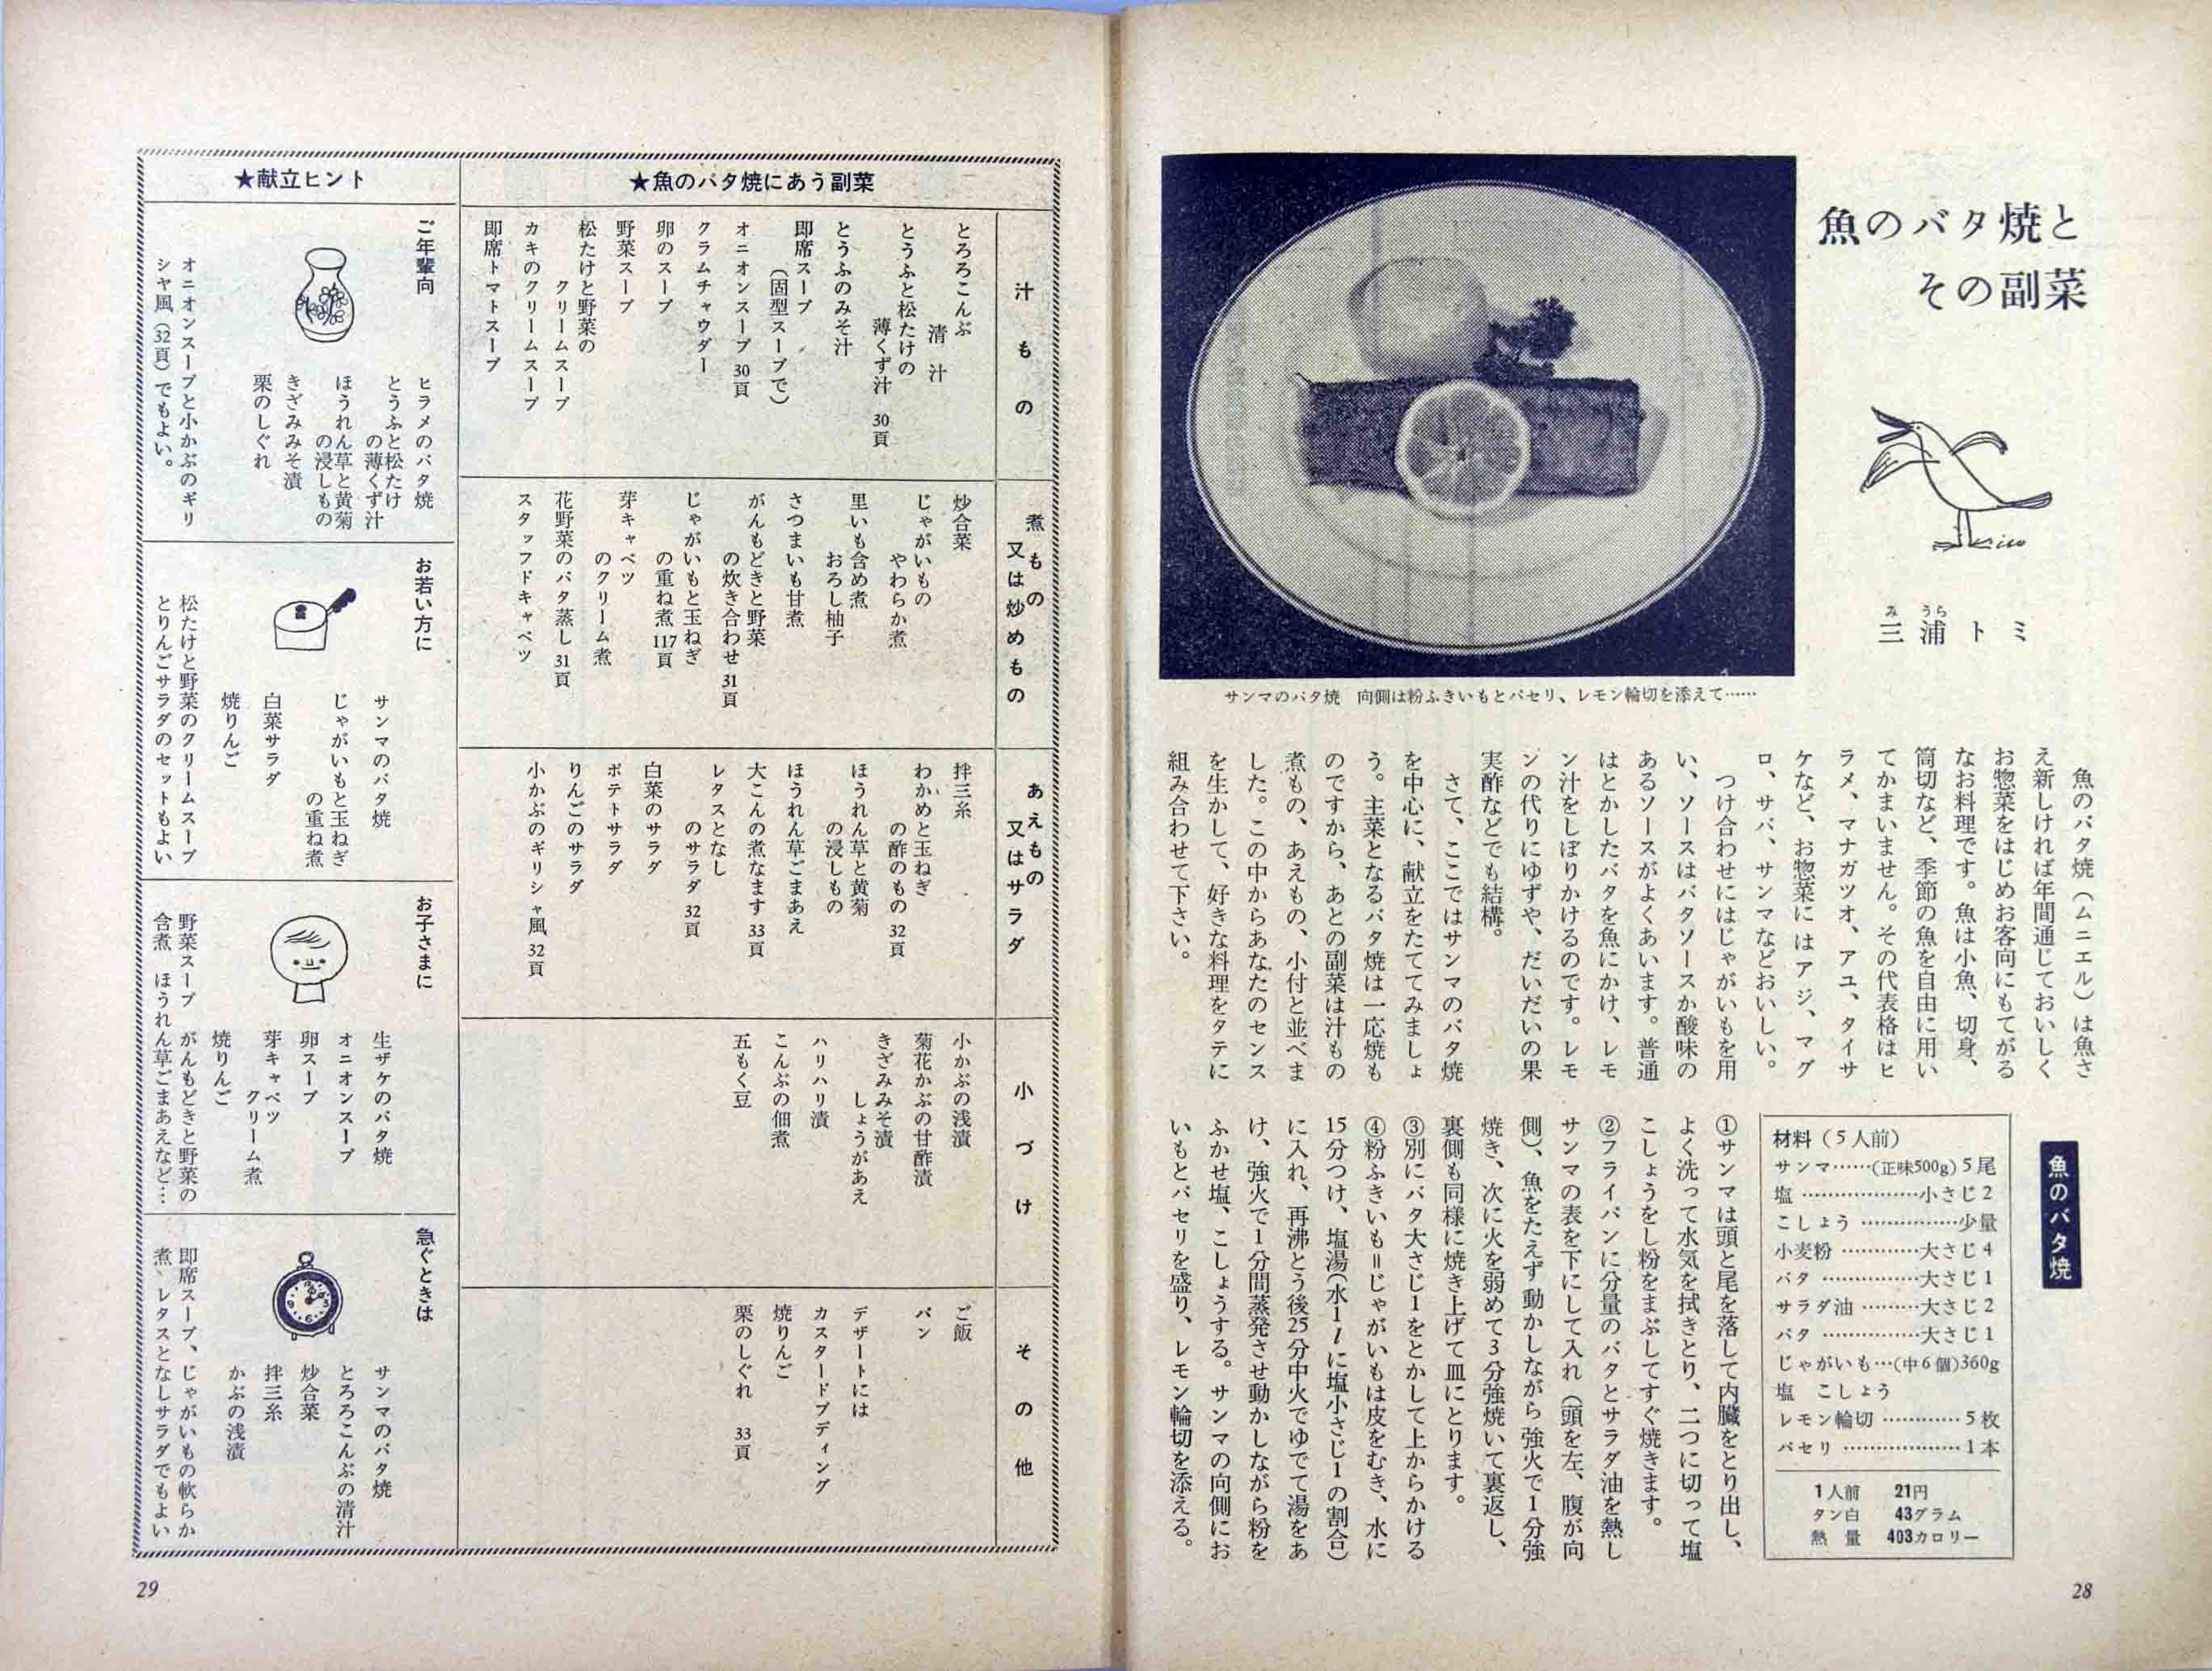 魚のバタ焼と
その副菜
み うら
三浦トミ
サンマのバタ焼　向側は粉ふきいもとパセリ、レモン輪切を添えて……
魚のバタ焼（ムニエル）は魚さ
え新しければ年間通じておいしく
お惣菜をはじめお客向にもてがる
なお料理です。魚は小魚、切身、
筒切など、季節の魚を自由に用い
てかまいません。その代表格はヒ
ラメ、マナガツオ、アユ、タイサ
ケなど、お惣菜にはアジ、マグ
ロ、サバ、サンマなどおいしい。
つけ合わせにはじゃがいもを用
い、ソースはバタソースか酸味の
あるソースがよくあいます。普通
はとかしたバタを魚にかけ、レモ
ン汁をしぼりかけるのです。レモ
ンの代りにゆずや、だいだいの果
実酢などでも結構。
さて、ここではサンマのバタ焼
を中心に、献立をたててみましょ
う。主菜となるバタ焼は一応焼も
のですから、あとの副菜は汁もの
煮もの、あえもの、小付と並べま
した。この中からあなたのセンス
を生かして、好きな料理をタテに
組み合わせて下さい。
魚のバタ焼
材料（5人前）
サンマ……（正味500g）5尾
塩………………小さじ2
こしょう……………少量
小麦粉…………大さじ4
バタ……………大さじ1
サラダ油………大さじ2
バタ……………大さじ1
じゃがいも…（中6個）360g
塩　こしょう
レモン輪切…………5枚
パセリ………………1本
1人前　21円
タン白　43グラム
熱量　403カロリー
①サンマは頭と尾を落して内臓をとり出し、
よく洗って水気を拭きとり、二つに切って塩
こしょうをし粉をまぶしてすぐ焼きます。
②フライパンに分量のバタとサラダ油を熱し
サンマの表を下にして入れ（頭を左、腹が向
側）、魚をたえず動かしながら強火で1分強
焼き、次に火を弱めて3分強焼いて裏返し、
裏側も同様に焼き上げて皿にとります。
③別にバタ大さじ1をとかして上からかける
④粉ふきいも＝じゃがいもは皮をむき、水に
15分つけ、塩湯（水1lに塩小さじ1の割合）
に入れ、再沸とう後25分中火でゆでて湯をあ
け、強火で1分間蒸発させ動かしながら粉を
ふかせ塩、こしょうする。サンマの向側にお
いもとパセリを盛り、レモン輪切を添える。
28
★魚のバタ焼にあう副菜
汁もの
とろろこんぶ
清汁
とうふと松たけの
薄くず汁　30頁
とうふのみそ汁
即席スープ
（固型スープで）
オニオンスープ　30頁
クラムチャウダー
卵のスープ
野菜スープ
松たけと野菜の
クリームスープ
カキのクリームスープ
即席トマトスープ
煮もの
又は炒めもの
炒合菜
じゃがいもの
やわらか煮
里いも含め煮
おろし柚子
さつまいも甘煮
がんもどきと野菜
の炊き合わせ　31頁
じゃがいもと玉ねぎ
の重ね煮　117頁
芽キャベツ
のクリーム煮
花野菜のバタ蒸し　31頁
スタッフドキャベツ
あえもの
又はサラダ
拌三糸
わかめと玉ねぎ
の酢のもの　32頁
ほうれん草と黄菊
の浸しもの
ほうれん草ごまあえ
大こんの煮なます　33頁
レタスとなし
のサラダ　32頁
白菜のサラダ
ポテトサラダ
りんごのサラダ
小かぶのギリシャ風　32頁
小づけ
小かぶの浅漬
菊花かぶの甘酢漬
きざみみそ漬
しょうがあえ
ハリハリ漬
こんぶの佃煮
五もく豆
その他
ご飯
パン
デザートには
カスタードプディング
焼りんご
栗のしぐれ　33頁
★献立ヒント
ご年輩向
ヒラメのバタ焼
とうふと松たけ
の薄くず汁
ほうれん草と黄菊
の浸しもの
きざみみそ漬
栗のしぐれ
オニオンスープと小かぶのギリ
シャ風（32頁）でもよい。
お若い方に
サンマのバタ焼
じゃがいもと玉ねぎ
の重ね煮
白菜サラダ
焼りんご
松たけと野菜のクリームスープ
とりんごサラダのセットもよい
お子さまに
生ザケのバタ焼
オニオンスープ
卵スープ
芽キャベツ
クリーム煮
焼りんご
野菜スープ　がんもどきと野菜の
含煮　ほうれん草ごまあえなど…
急ぐときは
サンマのバタ焼
とろろこんぶの清汁
炒合菜
拌三糸
かぶの浅漬
即席スープ、じゃがいもの軟らか
煮、レタスとなしサラダでもよい
29